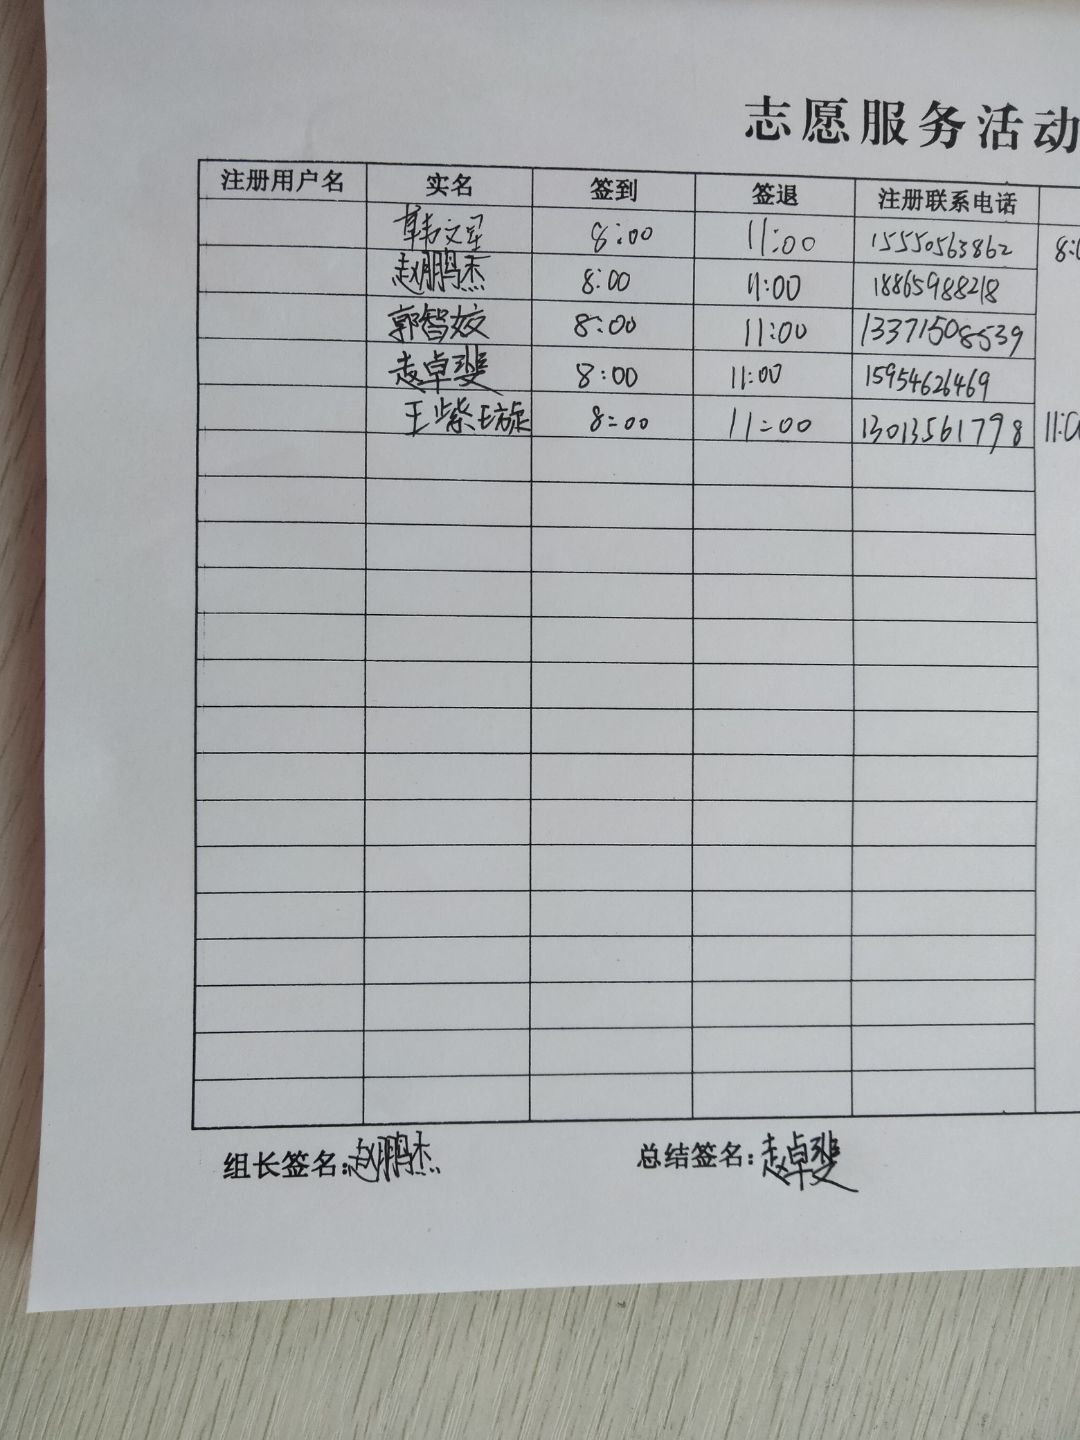 志愿服务活动
注册用户名 实名 签到 签退 注册联系电话
韩文星 8:00 11:00 15550563862 8:0
赵鹏杰 8:00 11:00 18865988218
郭智姣 8:00 11:00 13371508539
赵卓斐 8:00 11:00 15954626469
王紫璇 8:00 11:00 13013561798 11:00
组长签名:赵鹏杰 总结签名:赵卓斐